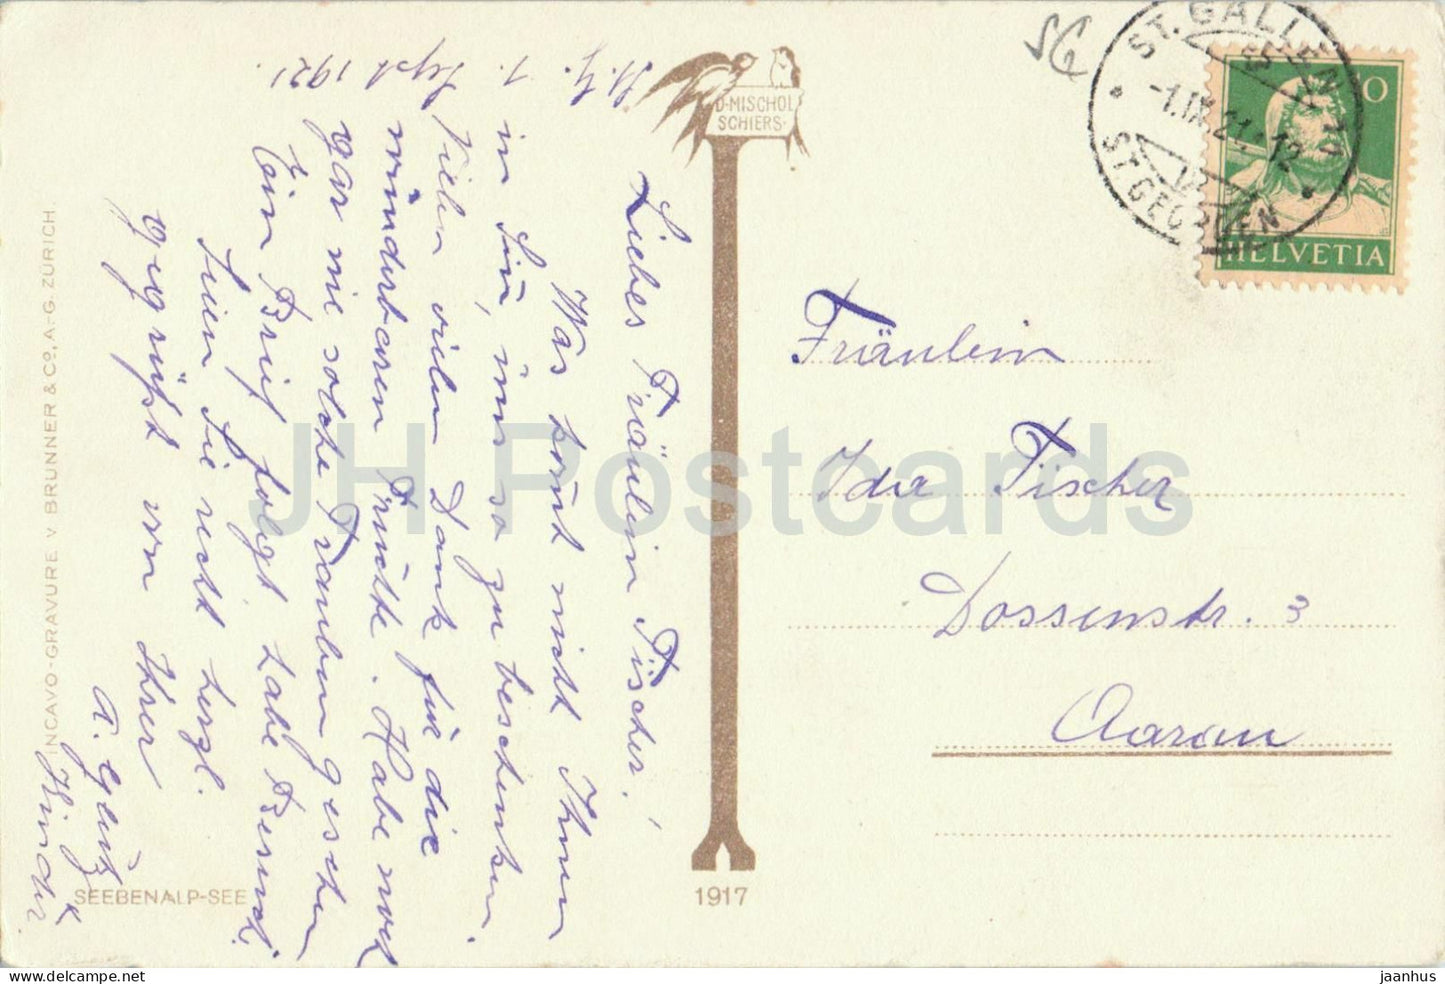 St. G. 1. Sept 1921.
Liebes Fräulein Fischer!
Was kommt nicht Ihnen
in Sinn, uns so zu beschenken.
Vielen vielen Dank für die
wunderbaren Früchte. Habe noch
gar nie solche Trauben gesehen
Ein Brief folgt habe Besuch.
Seien Sie recht herzl.
gegrüsst von Ihrer
A.
Kinder.
D·MISCHOL
SCHIERS·
INCAVO-GRAVURE V. BRUNNER & Co, A-G. ZÜRICH.
SEEBENALP-SEE
1917
SG
ST. GALLEN 10
-1.IX.21.-12
ST GEORGEN
10
HELVETIA
Fräulein
Ida Fischer
Dossenstr. 3
Aarau
JH Postcards
jaanhus